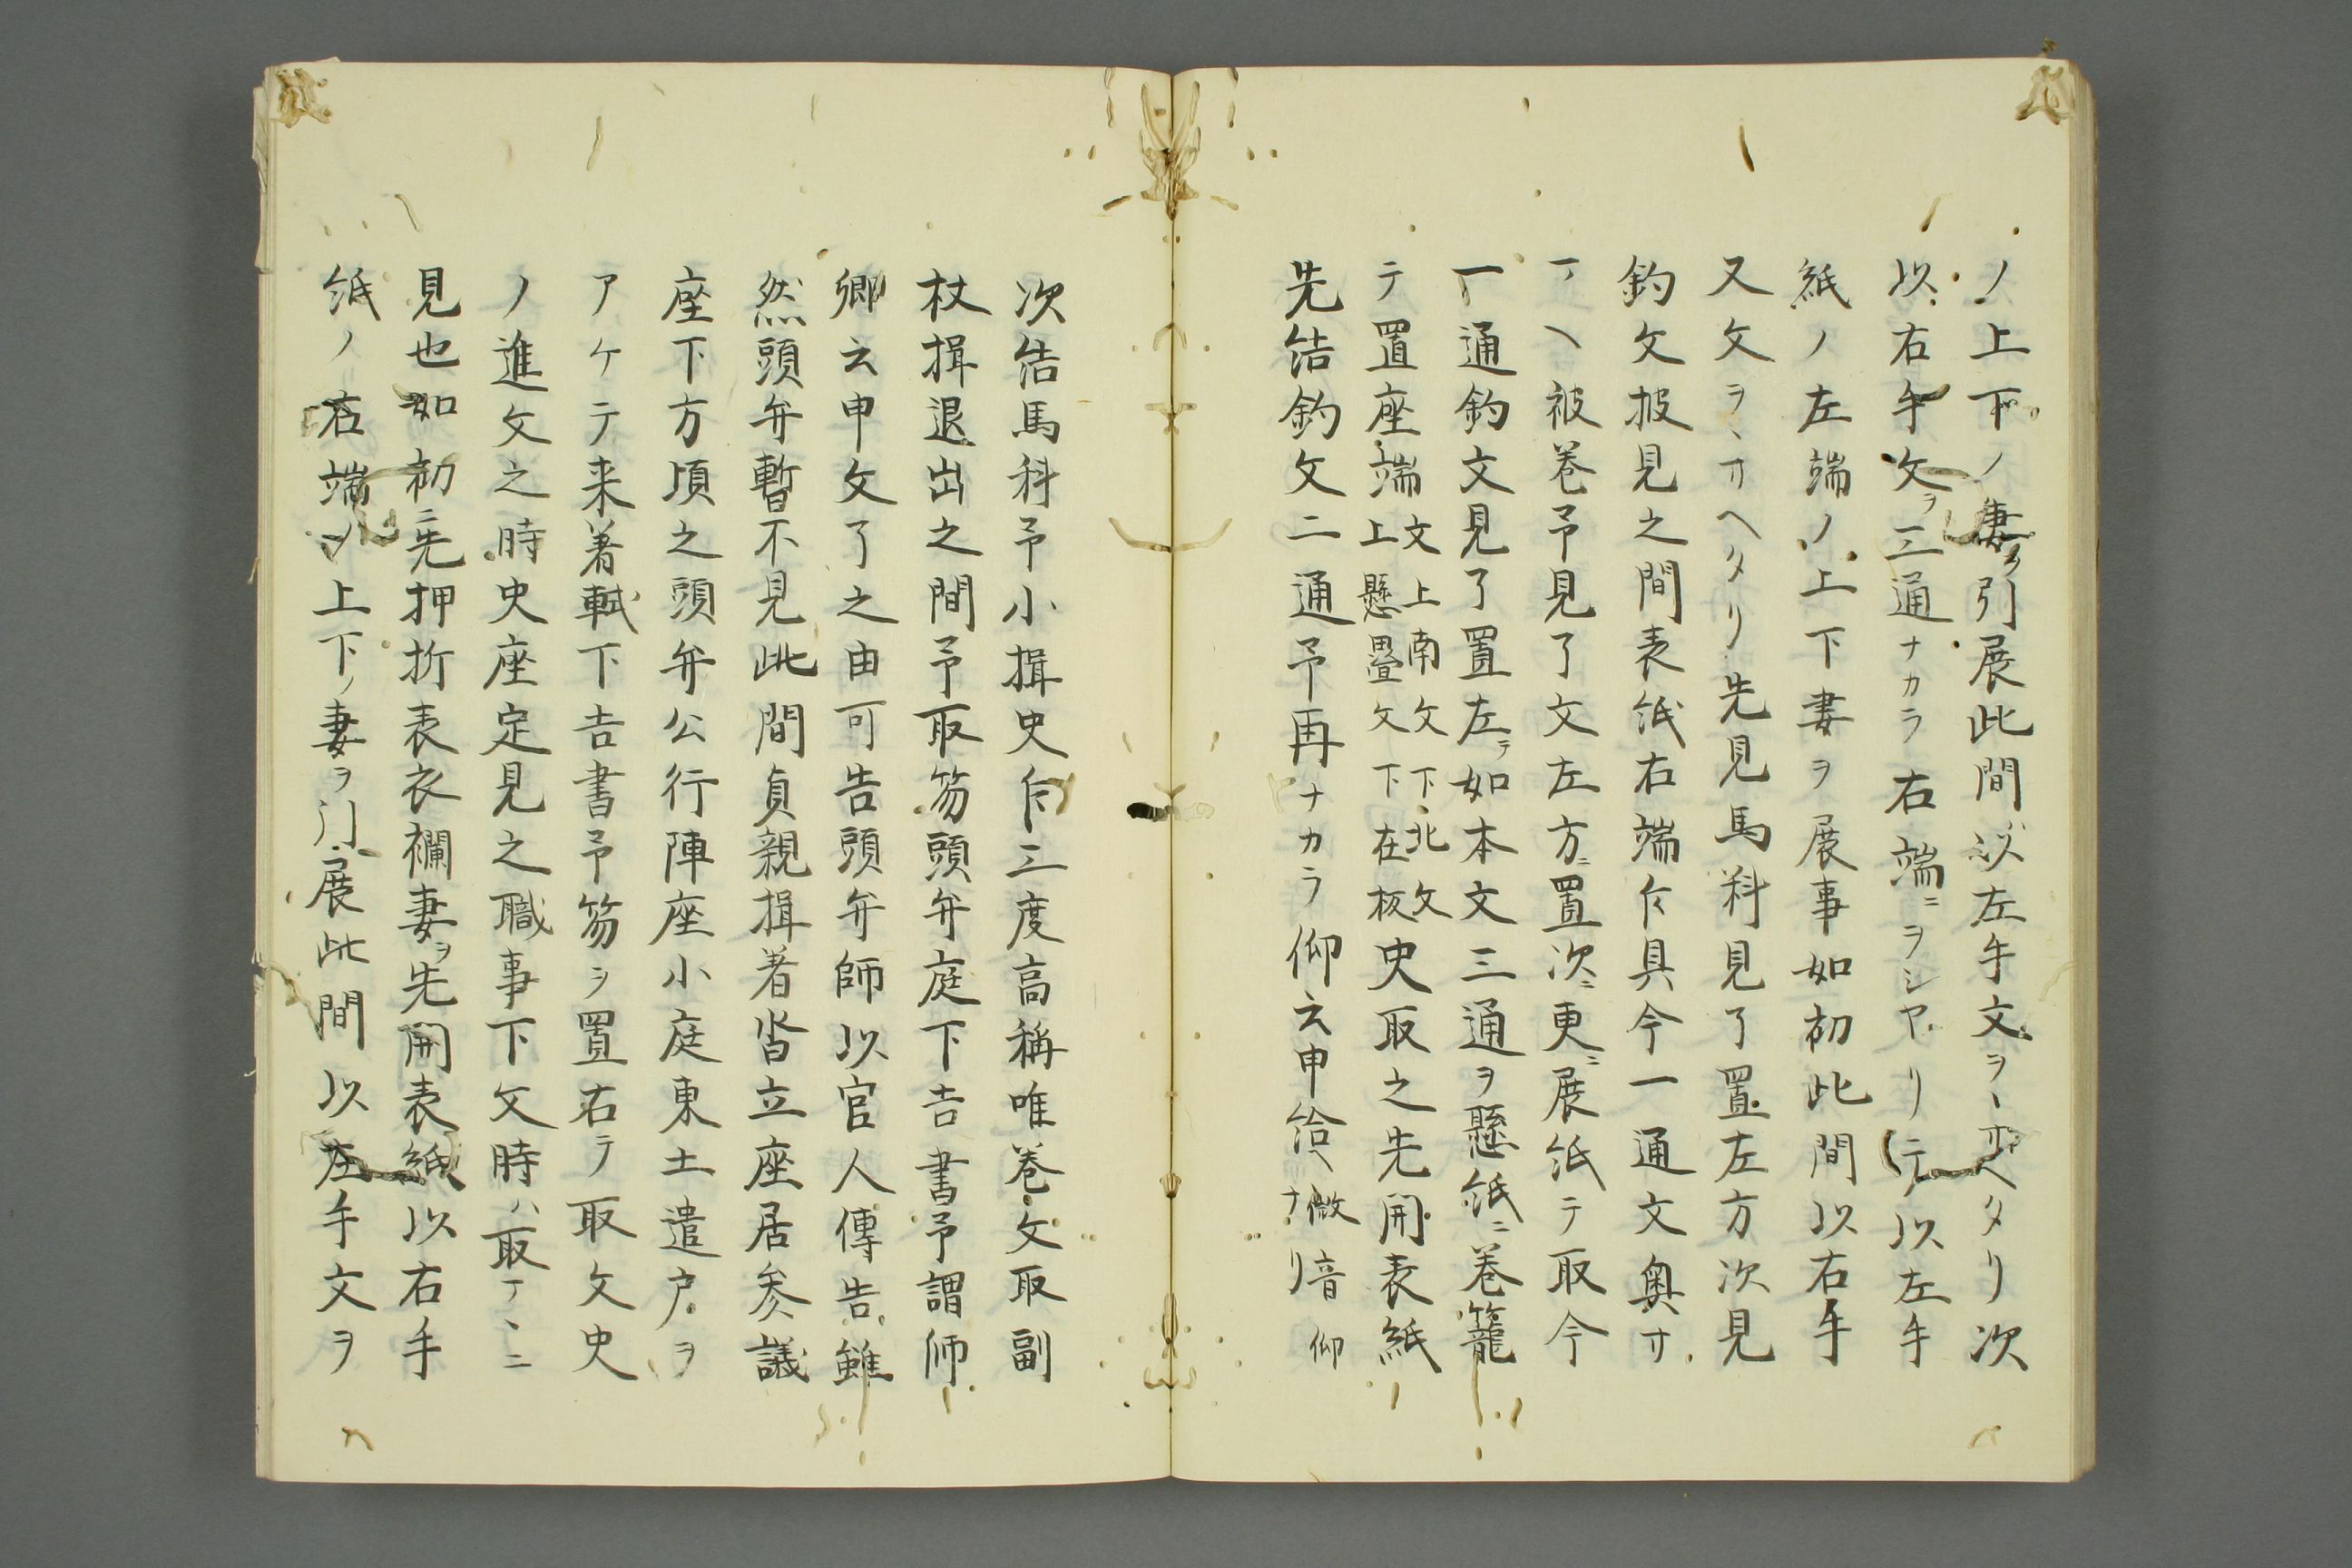 ノ上下ノ妻ヲ引展此間以左手文ヲヽオヘタリ次
以右手文ヲ三通ナカラ右端ニヲシヤリテ以左手
紙ノ左端ノ上下妻ヲ展事如初此間以右手
又文ヲヽオヘタリ先見馬料見了置左方次見
釣文披見之間表紙右端乍具今一通文奥オ
被巻予見了文左方ニ置次ニ更ニ展紙テ取今
一通釣文見了置左テ如本文三通ヲ懸紙ニ巻籠
テ置座端文上南文下北文
上懸畳文下在板史取之先開表紙
先結釣文二通予再ナカラ仰云申給ヘ微音仰
ナリ
次結馬科予小揖史乍三度高稱唯巻文取副
杖揖退出之間予取笏頭弁庭下吉書予謂師
卿云申文了之由可告頭弁師以官人傳告雖
然頭弁暫不見此間貞親揖着沓立座居参議
座下方頃之頭弁公行陣座小庭東土遣戸ヲ
アケテ来着軾下吉書予笏ヲ置右テ取文史
ノ進文之時史座定見之職事下文時ハ取
見也如初ニ先押折表衣襴妻ヲ先開表紙以右手
紙ノ右端ノ上下ノ妻ヲ引展此間以左手文ヲ